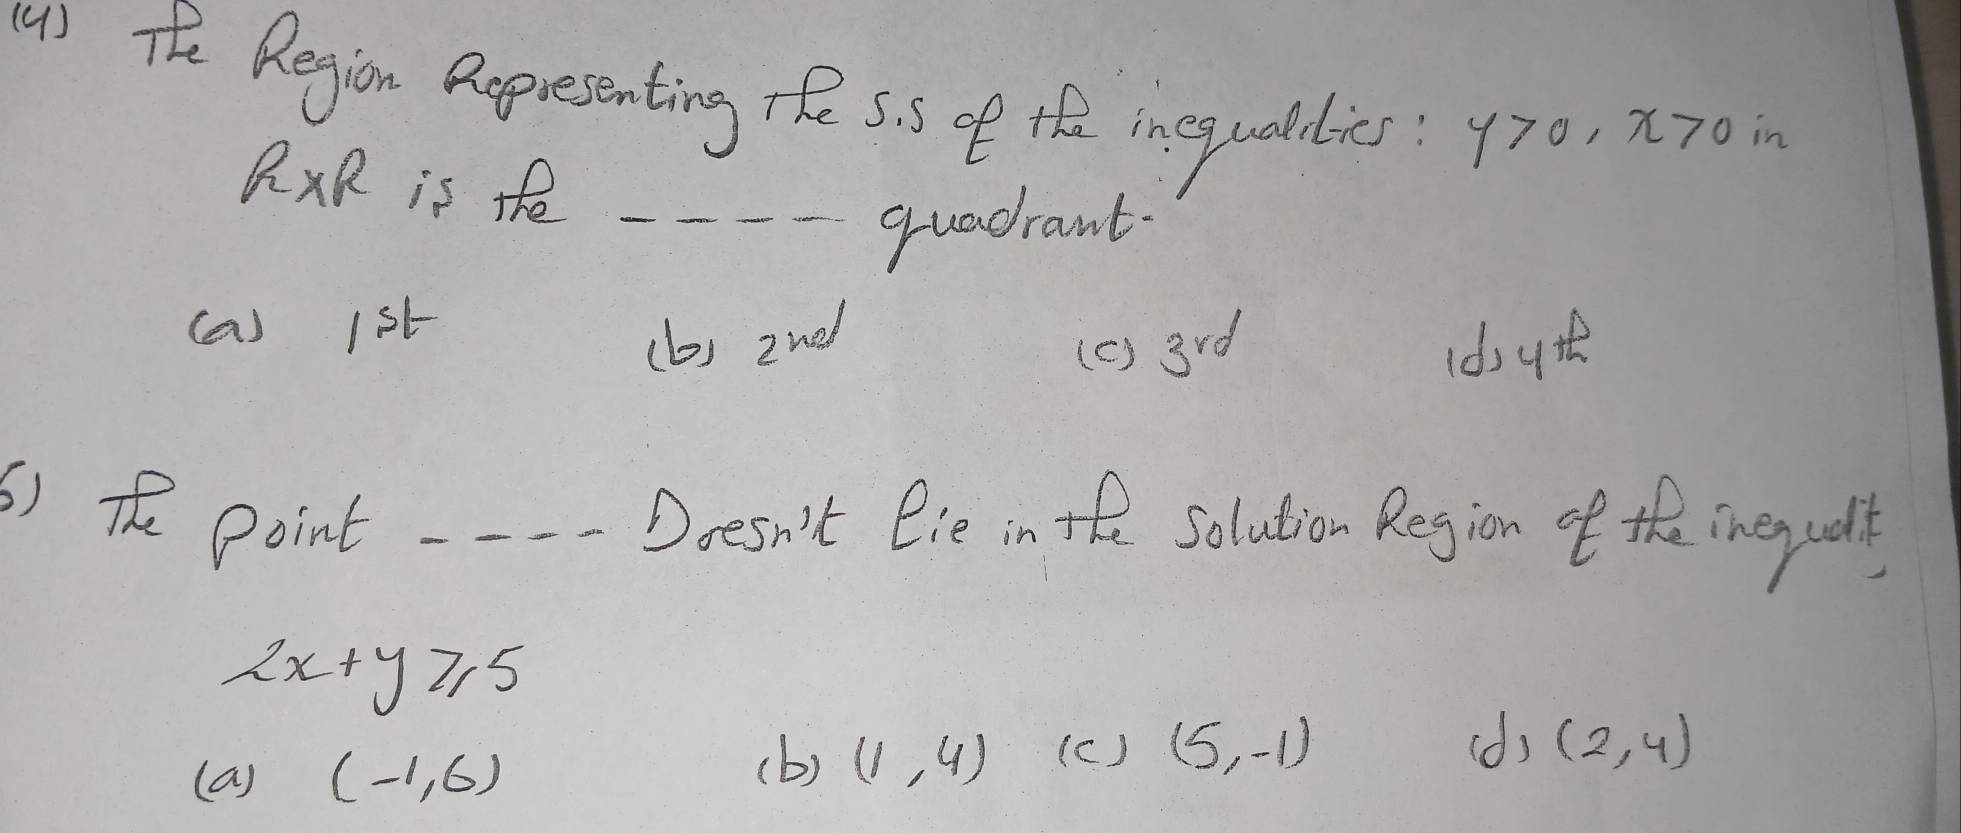 (4) The Region Representing the S.S of the inequalities: y>0, x>0 in
RxR is the ---- quadrant.
(a) 1st (b) 2nd (c) 3rd (d) 4th
5) The point ---- Doesn't lie in the solution Region of the inequality
2x+y⩾5
(a) (-1,6) (b) (1,4) (c) (5,-1) (d) (2,4)